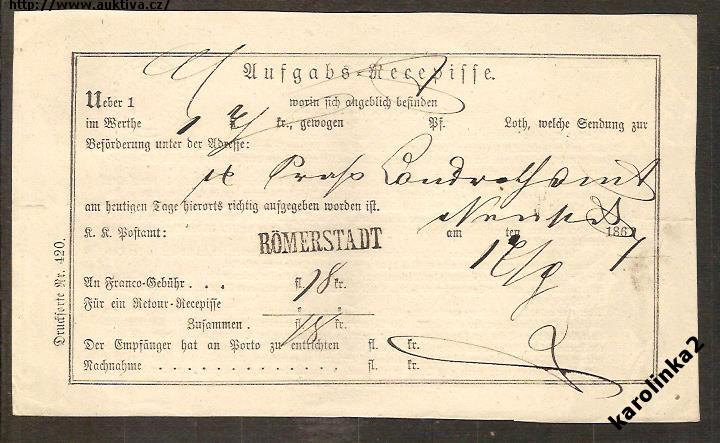 http://www.auktiva.cz/
Aufgabs-Recepisse.
Ueber 1 worin sich angeblich befinden
im Werthe kr., gewogen Pf. Loth, welche Sendung zur
Beförderung unter der Adresse:
Landrathsamt
am heutigen Tage hierorts richtig aufgegeben worden ist.
K. K. Postamt: RÖMERSTADT am ten 186
An Franco-Gebühr . . . fl. 18 kr.
Für ein Retour-Recepisse " "
Zusammen . fl. 18 kr.
Der Empfänger hat an Porto zu entrichten fl. kr.
Nachnahme . . . . . . . . . . . . fl. kr.
Drucksorte Nr. 420.
karolinka2